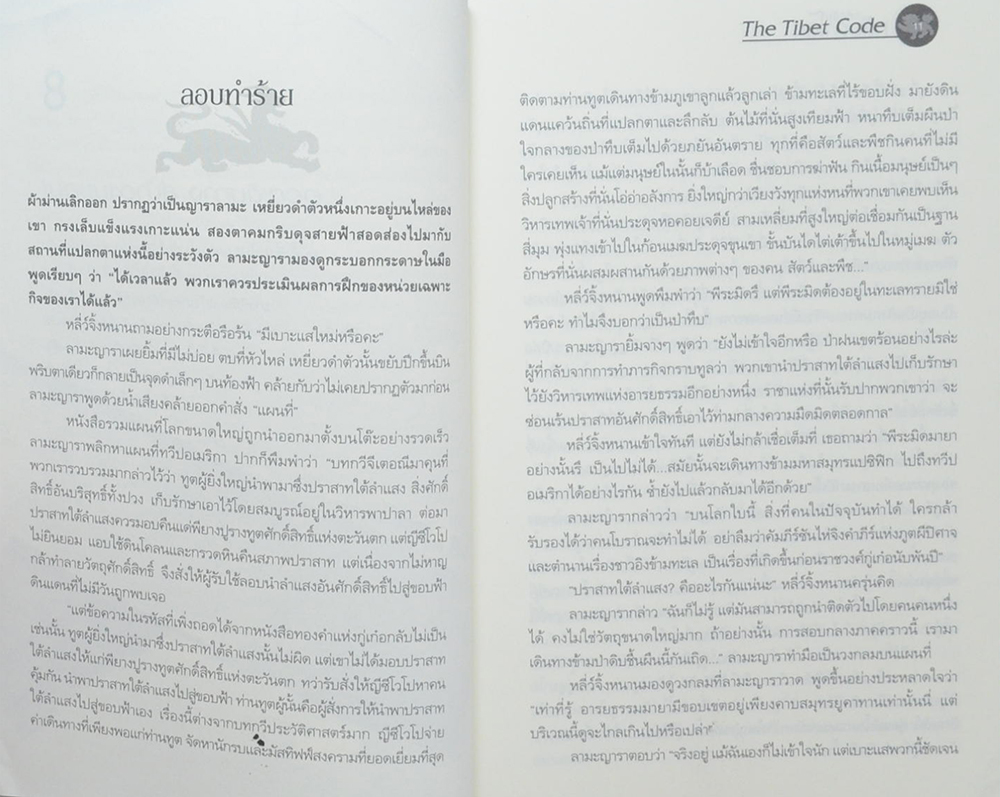 ลอบทำร้าย
ผ้าม่านเลิกออก ปรากฏว่าเป็นญาราลามะ เหยี่ยวดำตัวหนึ่งเกาะอยู่บนไหล่ของ
เขา กรงเล็บแข็งแรงเกาะแน่น สองตาคมกริบดุจสายฟ้าสอดส่องไปมากับ
สถานที่แปลกตาแห่งนี้อย่างระวังตัว ลามะญารามองดูกระบอกกระดาษในมือ
พูดเรียบๆ ว่า "ได้เวลาแล้ว พวกเราควรประเมินผลการฝึกของหน่วยเฉพาะ
กิจของเราได้แล้ว"
หลี่ว์จิ้งหนานถามอย่างกระตือรือร้น "มีเบาะแสใหม่หรือคะ"
ลามะญาราเผยยิ้มที่มีไม่บ่อย ตบที่หัวไหล่ เหยี่ยวดำตัวนั้นขยับปีกขึ้นบิน
พริบตาเดียวก็กลายเป็นจุดดำเล็กๆ บนท้องฟ้า คล้ายกับว่าไม่เคยปรากฏตัวมาก่อน
ลามะญาราพูดด้วยน้ำเสียงคล้ายออกคำสั่ง "แผนที่"
หนังสือรวมแผนที่โลกขนาดใหญ่ถูกนำออกมาตั้งบนโต๊ะอย่างรวดเร็ว
ลามะญาราพลิกหาแผนที่ทวีปอเมริกา ปากก็พึมพำว่า "บทกวีจีเตอณีมาคุนที่
พวกเรารวบรวมมากล่าวไว้ว่า ทูตผู้ยิ่งใหญ่นำพามาซึ่งปราสาทใต้ลำแสง สิ่งศักดิ์
สิทธิ์อันบริสุทธิ์ทั้งปวง เก็บรักษาเอาไว้โดยสมบูรณ์อยู่ในวิหารพาปาลา ต่อมา
ปราสาทใต้ลำแสงควรมอบคืนแด่พียางปูรางทูตศักดิ์สิทธิ์แห่งตะวันตก แต่ญีซีโวโป
ไม่ยินยอม แอบใช้ดินโคลนและกรวดหินคืนสภาพปราสาท แต่เนื่องจากไม่หาญ
กล้าทำลายวัตถุศักดิ์สิทธิ์ จึงสั่งให้ผู้รับใช้ลอบนำลำแสงอันศักดิ์สิทธิ์ไปสู่ขอบฟ้า
ดินแดนที่ไม่มีวันถูกพบเจอ
"แต่ข้อความในรหัสที่เพิ่งถอดได้จากหนังสือทองคำแห่งกู่เก๋อกลับไม่เป็น
เช่นนั้น ทูตผู้ยิ่งใหญ่นำมาซึ่งปราสาทใต้ลำแสงนั้นไม่ผิด แต่เขาไม่ได้มอบปราสาท
ใต้ลำแสงให้แก่พียางปูรางทูตศักดิ์สิทธิ์แห่งตะวันตก ทว่ารับสั่งให้ญีซีโวโปหาคน
คุ้มกัน นำพาปราสาทใต้ลำแสงไปสู่ขอบฟ้า ท่านทูตผู้นั้นคือผู้สั่งการให้นำพาปราสาท
ใต้ลำแสงไปสู่ขอบฟ้าเอง เรื่องนี้ต่างจากบทกวีประวัติศาสตร์มาก ญีซีโวโปจ่าย
ค่าเดินทางที่เพียงพอแก่ท่านทูต จัดหานักรบและมัสทิฟฟ์สงครามที่ยอดเยี่ยมที่สุด
The Tibet Code 11
ติดตามท่านทูตเดินทางข้ามภูเขาลูกแล้วลูกเล่า ข้ามทะเลที่ไร้ขอบฝั่ง มายังดิน
แดนแคว้นถิ่นที่แปลกตาและลึกลับ ต้นไม้ที่นั่นสูงเทียมฟ้า หนาทึบเต็มผืนป่า
ใจกลางของป่าทึบเต็มไปด้วยภยันอันตราย ทุกที่คือสัตว์และพืชกินคนที่ไม่มี
ใครเคยเห็น แม้แต่มนุษย์ในนั้นก็บ้าเลือด ชื่นชอบการฆ่าฟัน กินเนื้อมนุษย์เป็นๆ
สิ่งปลูกสร้างที่นั่นโอ่อ่าอลังการ ยิ่งใหญ่กว่าเวียงวังทุกแห่งหนที่พวกเขาเคยพบเห็น
วิหารเทพเจ้าที่นั่นประดุจหอคอยเจดีย์ สามเหลี่ยมที่สูงใหญ่ต่อเชื่อมกันเป็นฐาน
สี่มุม พุ่งแทงเข้าไปในก้อนเมฆประดุจขุนเขา ขั้นบันไดไต่เต้าขึ้นไปในหมู่เมฆ ตัว
อักษรที่นั่นผสมผสานกันด้วยภาพต่างๆ ของคน สัตว์และพืช..."
หลี่ว์จิ้งหนานพูดพึมพำว่า "พีระมิดรึ แต่พีระมิดต้องอยู่ในทะเลทรายมิใช่
หรือคะ ทำไมจึงบอกว่าเป็นป่าทึบ"
ลามะญารายิ้มจางๆ พูดว่า "ยังไม่เข้าใจอีกหรือ ป่าฝนเขตร้อนอย่างไรล่ะ
ผู้ที่กลับจากการทำภารกิจกราบทูลว่า พวกเขานำปราสาทใต้ลำแสงไปเก็บรักษา
ไว้ยังวิหารเทพแห่งอารยธรรมอีกอย่างหนึ่ง ราชาแห่งที่นั้นรับปากพวกเขาว่า จะ
ซ่อนเร้นปราสาทอันศักดิ์สิทธิ์เอาไว้ท่ามกลางความมืดมิดตลอดกาล"
หลี่ว์จิ้งหนานเข้าใจทันที แต่ยังไม่กล้าเชื่อเต็มที่ เธอถามว่า "พีระมิดมายา
อย่างนั้นรึ เป็นไปไม่ได้...สมัยนั้นจะเดินทางข้ามมหาสมุทรแปซิฟิก ไปถึงทวีป
อเมริกาได้อย่างไรกัน ซ้ำยังไปแล้วกลับมาได้อีกด้วย"
ลามะญารากล่าวว่า "บนโลกใบนี้ สิ่งที่คนในปัจจุบันทำได้ ใครกล้า
รับรองได้ว่าคนโบราณจะทำไม่ได้ อย่าลืมว่าคัมภีร์ซันไห่จิงคำภีร์แห่งภูตผีปิศาจ
และตำนานเรื่องชาวอิงข้ามทะเล เป็นเรื่องที่เกิดขึ้นก่อนราชวงศ์กู่เก๋อนับพันปี"
"ปราสาทใต้ลำแสง? คืออะไรกันแน่นะ" หลี่ว์จิ้งหนานครุ่นคิด
ลามะญารากล่าว "ฉันก็ไม่รู้ แต่มันสามารถถูกนำติดตัวไปโดยคนคนหนึ่ง
ได้ คงไม่ใช่วัตถุขนาดใหญ่มาก ถ้าอย่างนั้น การสอบกลางภาคคราวนี้ เรามา
เดินทางข้ามป่าดิบชื้นผืนนี้กันเถิด..." ลามะญาราทำมือเป็นวงกลมบนแผนที่
หลี่ว์จิ้งหนานมองดูวงกลมที่ลามะญาราวาด พูดขึ้นอย่างประหลาดใจว่า
"เท่าที่รู้ อารยธรรมมายามีขอบเขตอยู่เพียงคาบสมุทรยูคาทานเท่านั้นนี่ แต่
บริเวณนี้ดูจะไกลเกินไปหรือเปล่า"
ลามะญาราตอบว่า "จริงอยู่ แม้ฉันเองก็ไม่เข้าใจนัก แต่เบาะแสพวกนี้ชัดเจน